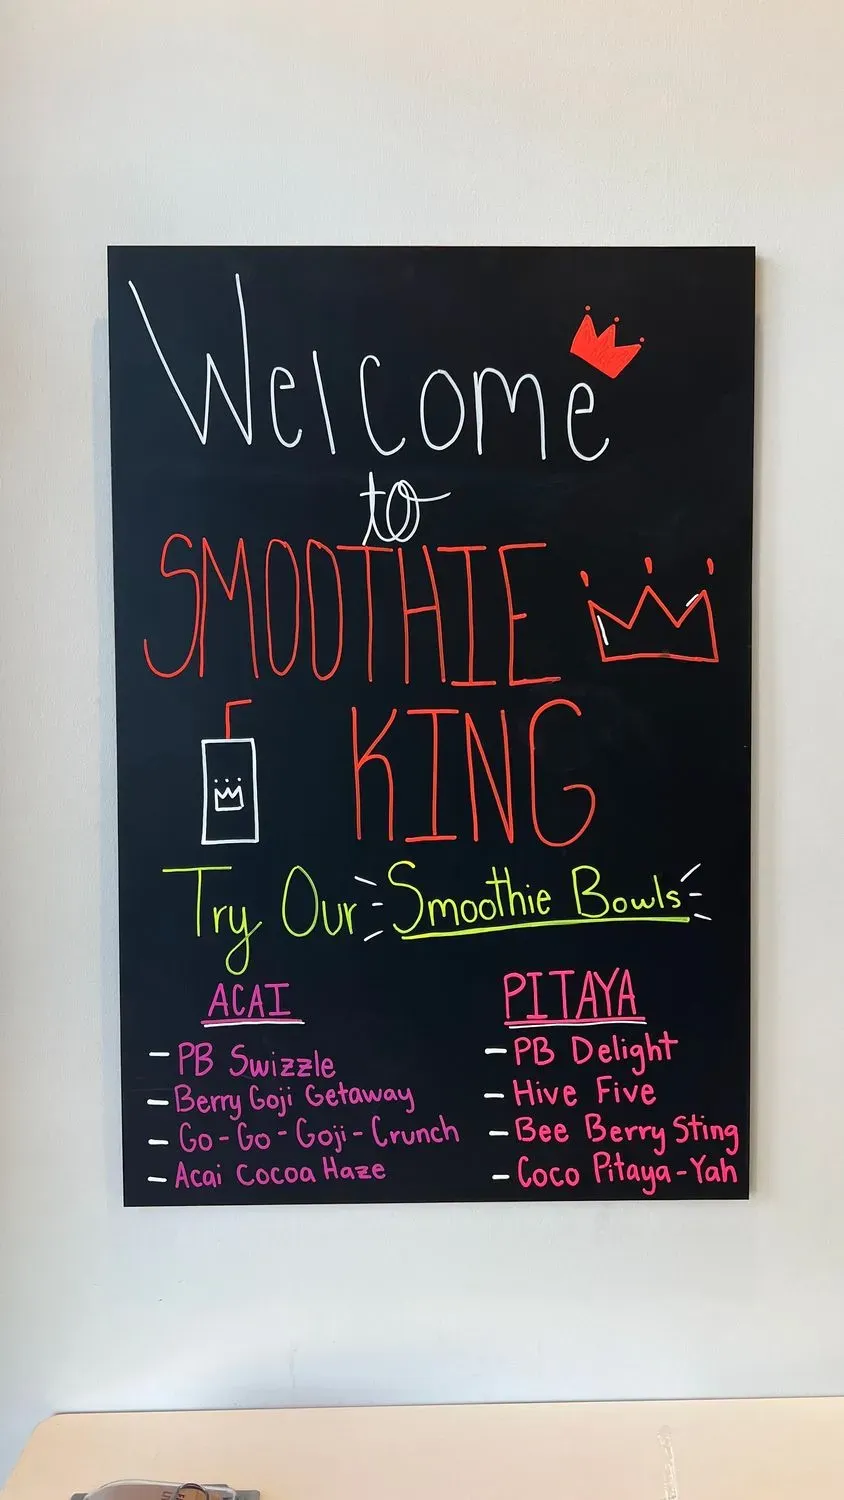 Welcome
to
SMOOTHIE
KING
Try Our Smoothie Bowls
ACAI
- PB Swizzle
- Berry Goji Getaway
- Go-Go-Goji-Crunch
- Acai Cocoa Haze
PITAYA
- PB Delight
- Hive Five
- Bee Berry Sting
- Coco Pitaya-Yah